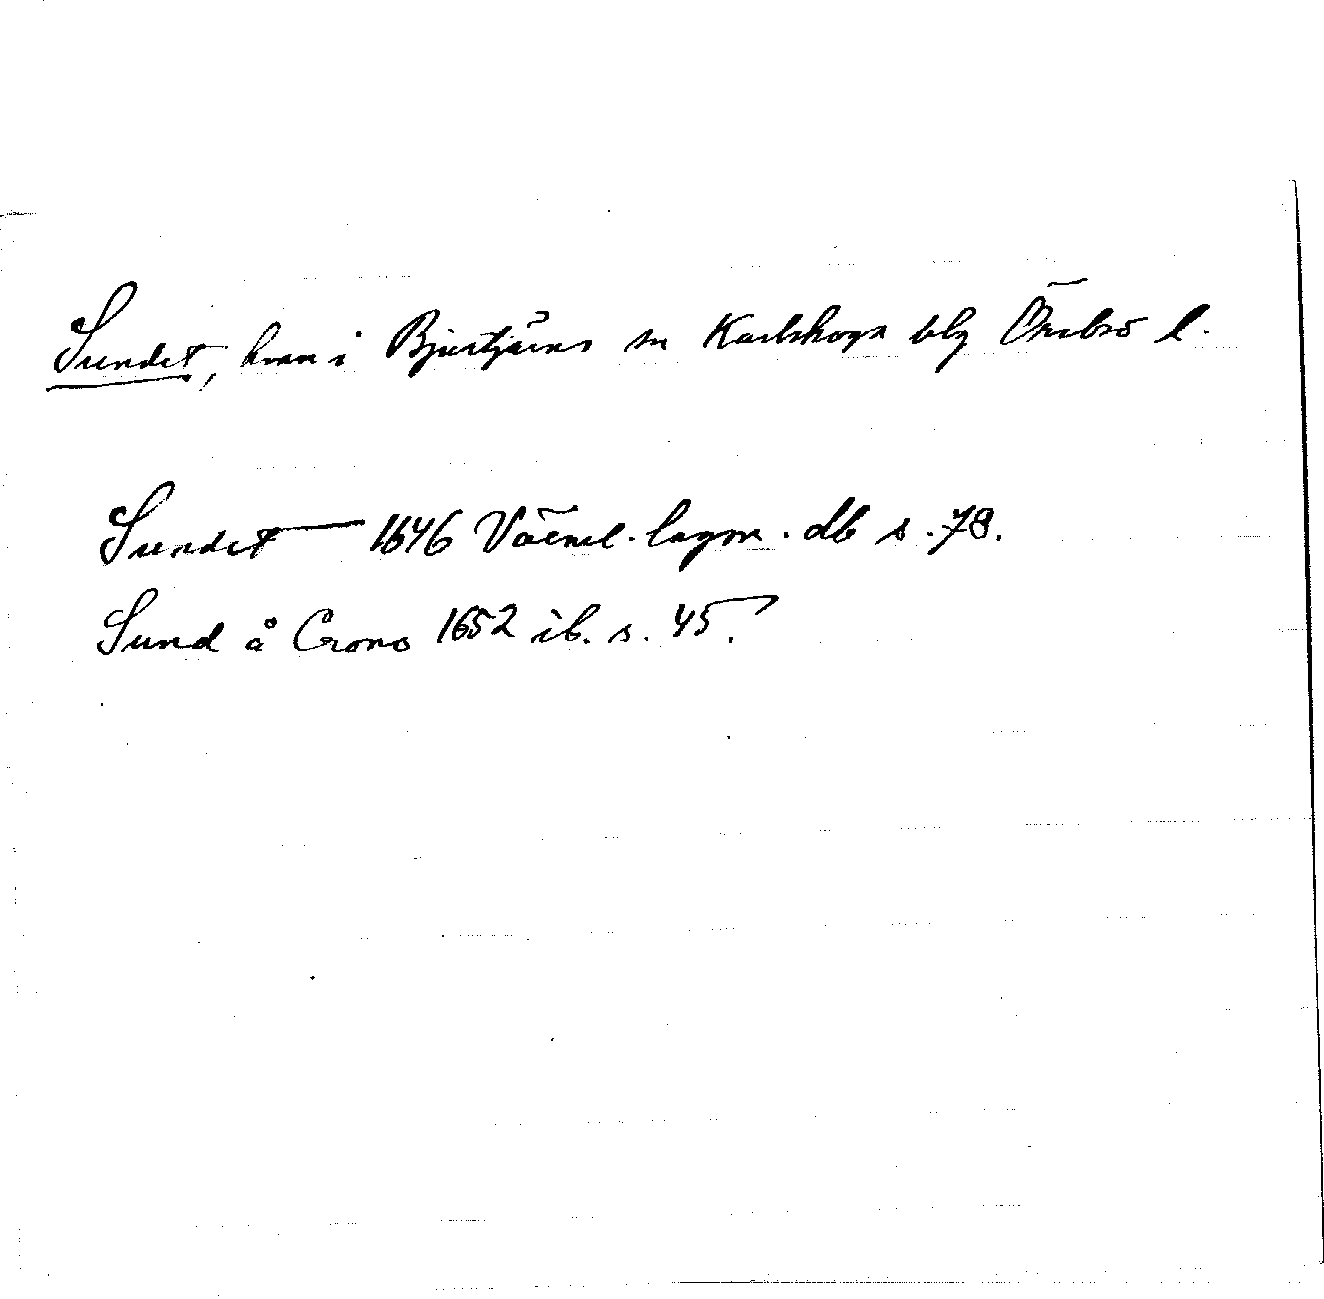 Sundet, hmn i Bjurtjärns sn Karlskoga blg Örebro l.
Sundet 1646 Värml. lagm. db s. 78.
Sund å Crono 1652 ib. s. 45.